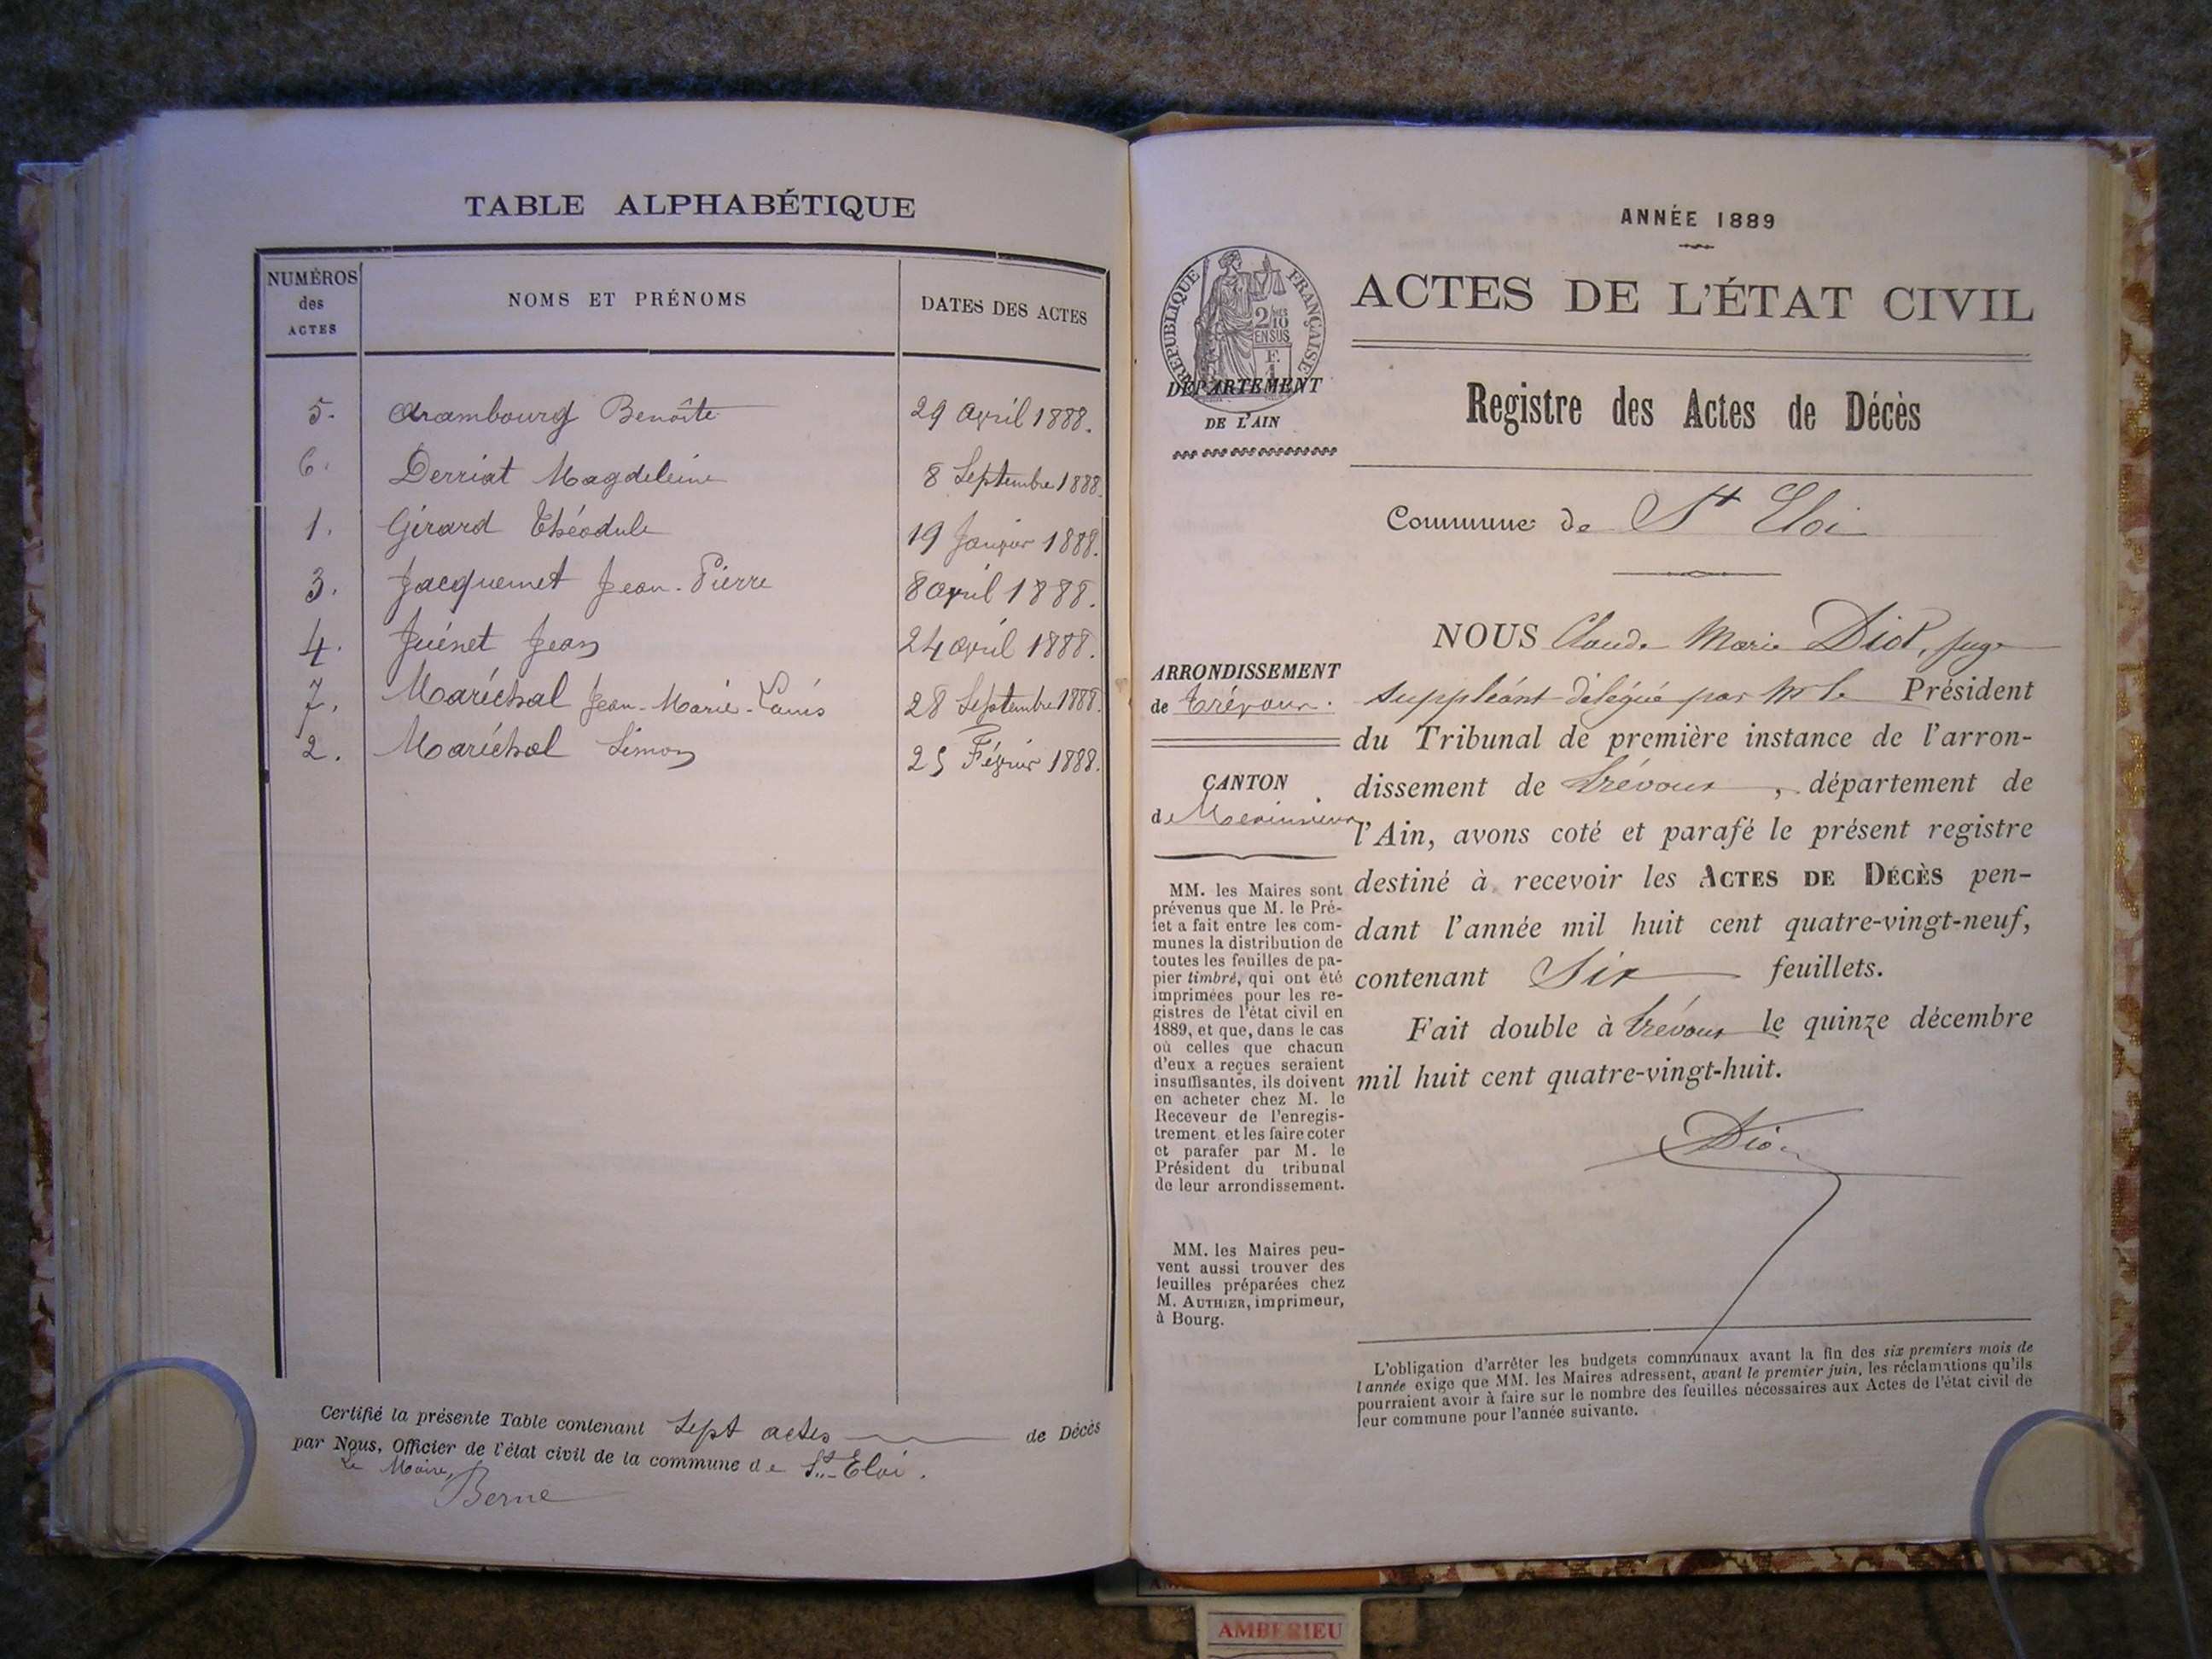 TABLE ALPHABÉTIQUE
NUMÉROS des ACTES
NOMS ET PRÉNOMS
DATES DES ACTES
5. Arambourg Benoîte 29 avril 1888.
6. Derriat Magdeleine 8 Septembre 1888.
1. Girard Théodule 19 Janvier 1888.
3. Jacquemet Jean-Pierre 8 avril 1888.
4. Juénet Jean 24 avril 1888.
7. Maréchal Jean-Marie-Louis 28 Septembre 1888.
2. Maréchal Simon 25 Février 1888.
Certifié la présente Table contenant Sept actes de Décès
par Nous, Officier de l'état civil de la commune de St-Eloi.
Le Maire,
Berne
ANNÉE 1889
RÉPUBLIQUE FRANÇAISE
2/10
EN SUS
DÉPARTEMENT
DE L'AIN
ACTES DE L'ÉTAT CIVIL
Registre des Actes de Décès
Commune de St Eloi
ARRONDISSEMENT
de Trévoux.
CANTON
de Meximieux
MM. les Maires sont
prévenus que M. le Pré-
fet a fait entre les com-
munes la distribution de
toutes les feuilles de pa-
pier timbré, qui ont été
imprimées pour les re-
gistres de l'état civil en
1889, et que, dans le cas
où celles que chacun
d'eux a reçues seraient
insuffisantes, ils doivent
en acheter chez M. le
Receveur de l'enregis-
trement et les faire coter
et parafer par M. le
Président du tribunal
de leur arrondissement.
MM. les Maires peu-
vent aussi trouver des
feuilles préparées chez
M. AUTHIER, imprimeur,
à Bourg.
NOUS Claude Marie Diot, juge
suppléant délégué par Mr le Président
du Tribunal de première instance de l'arron-
dissement de Trévoux, département de
l'Ain, avons coté et parafé le présent registre
destiné à recevoir les ACTES DE DÉCÈS pen-
dant l'année mil huit cent quatre-vingt-neuf,
contenant Six feuillets.
Fait double à Trévoux le quinze décembre
mil huit cent quatre-vingt-huit.
Diot
L'obligation d'arrêter les budgets communaux avant la fin des six premiers mois de
l'année exige que MM. les Maires adressent, avant le premier juin, les réclamations qu'ils
pourraient avoir à faire sur le nombre des feuilles nécessaires aux Actes de l'état civil de
leur commune pour l'année suivante.
AMBERIEU